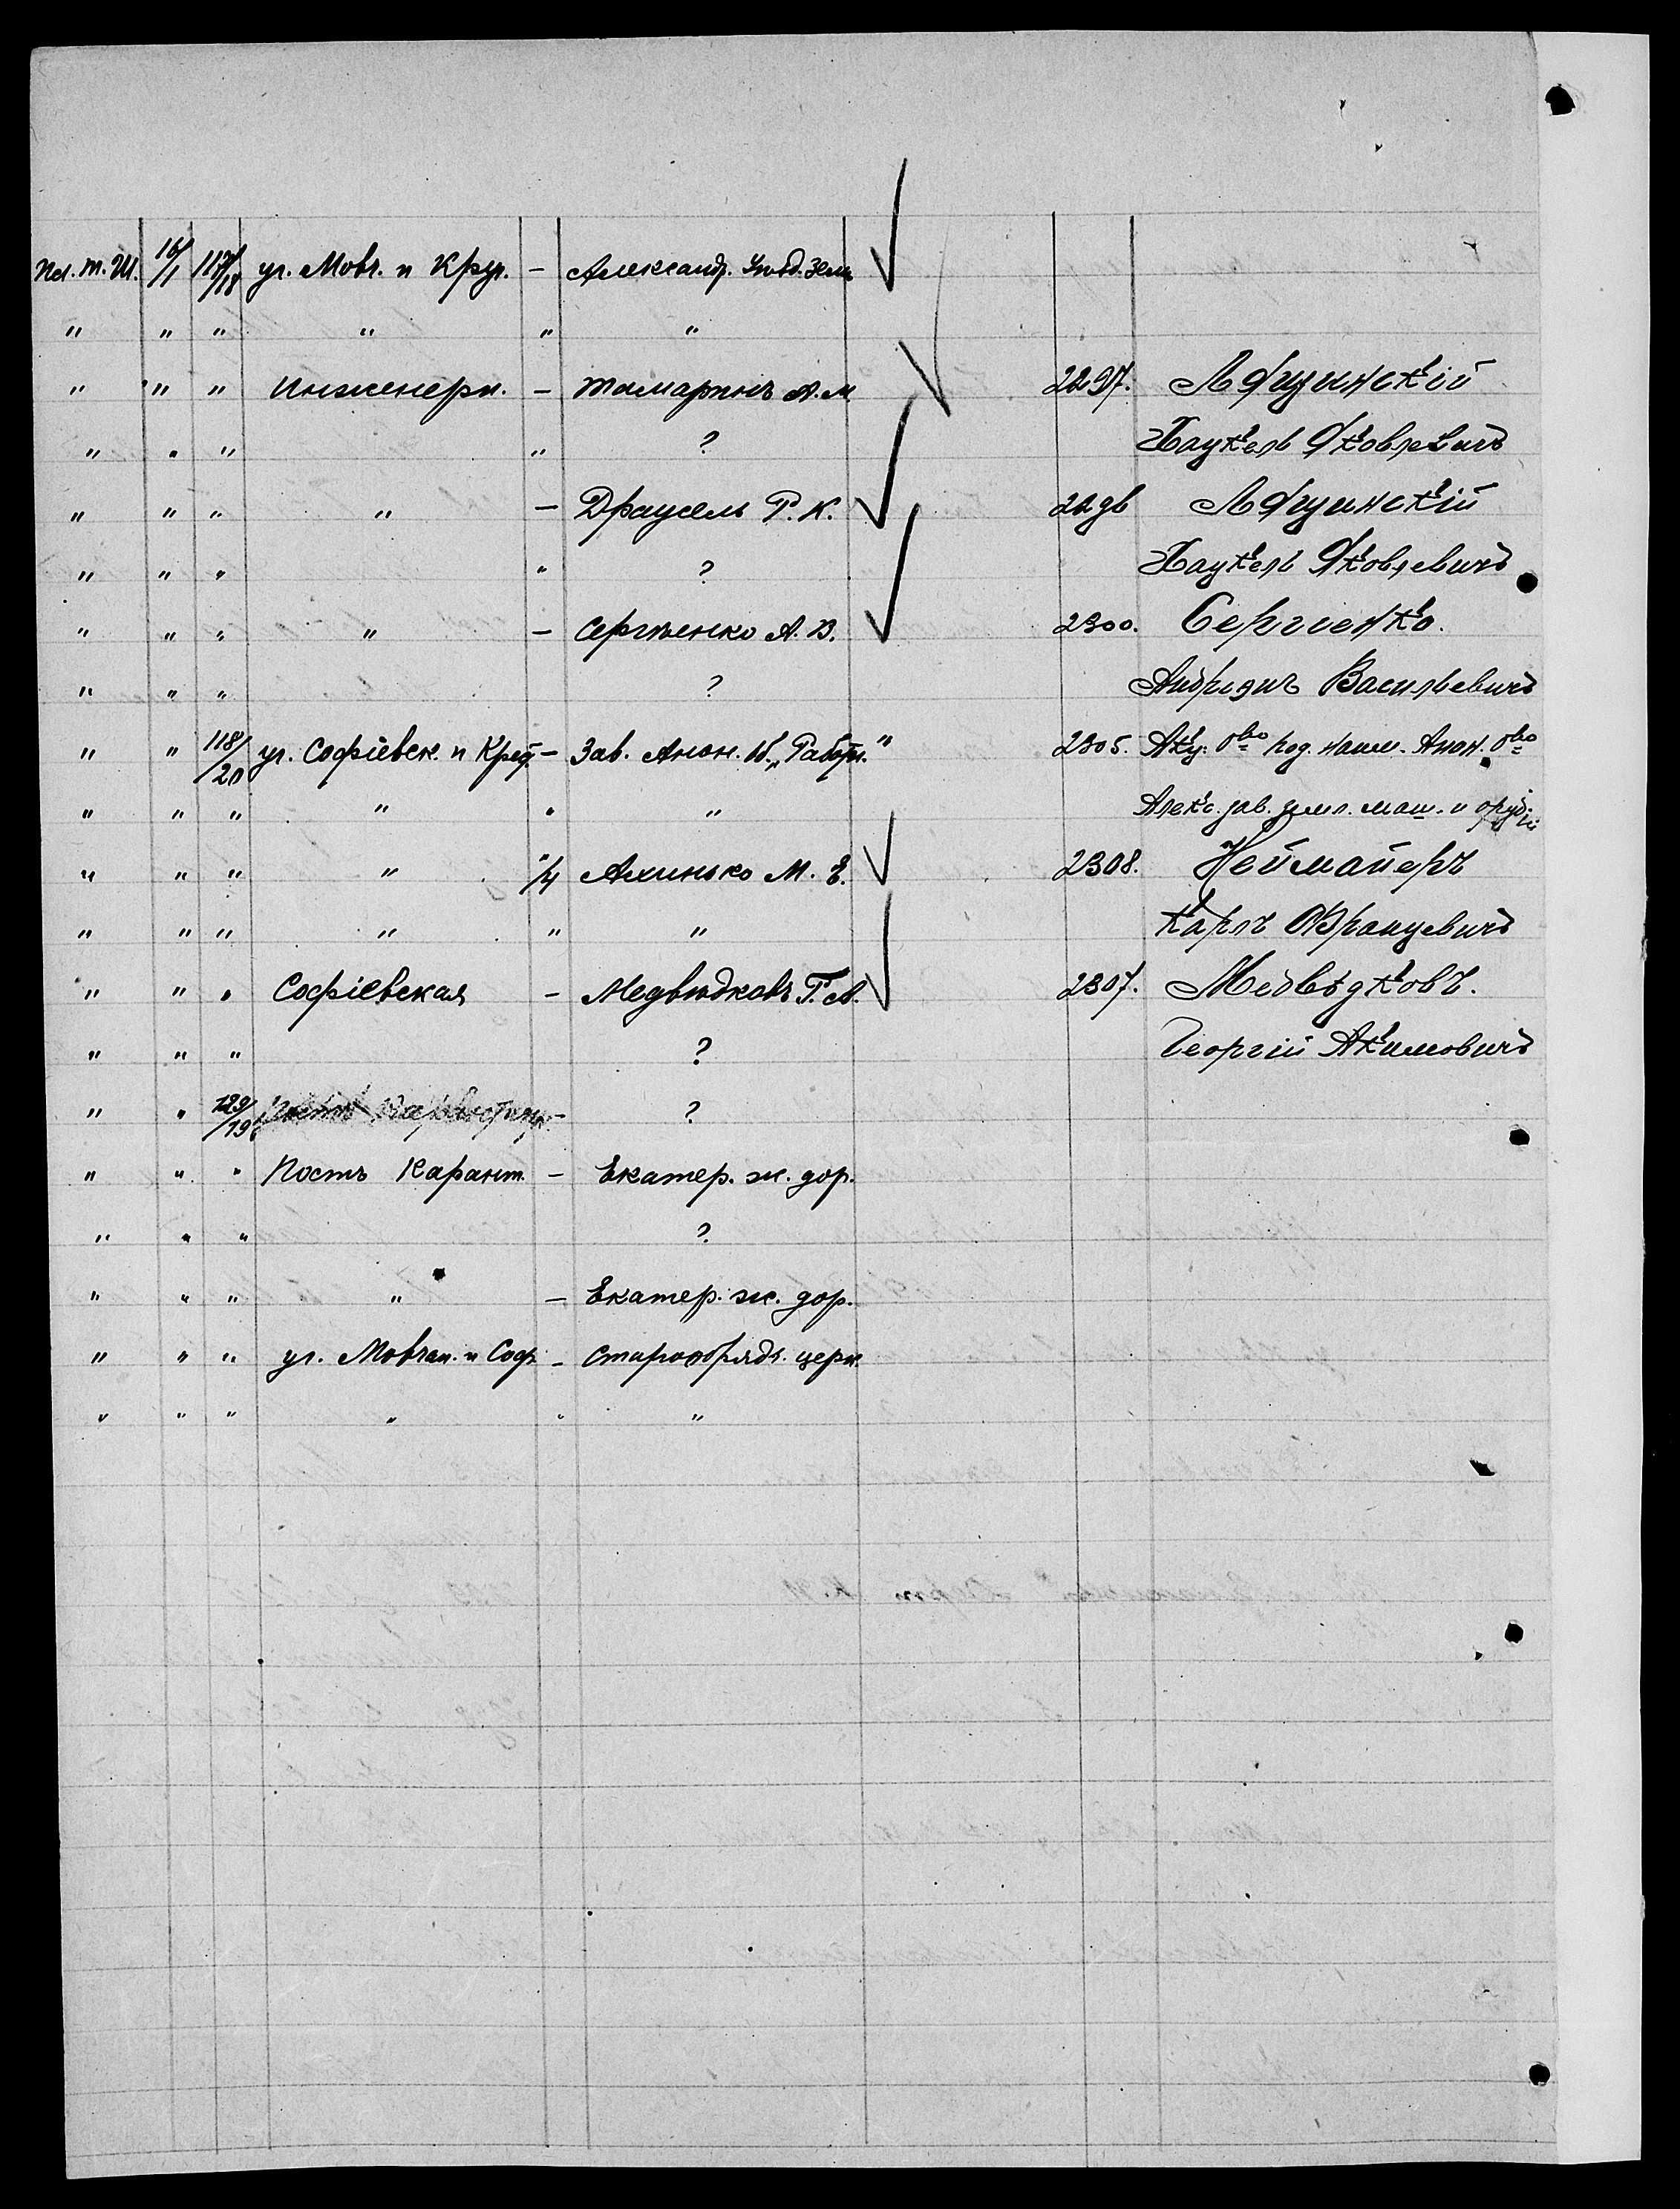 Пл. т. Ш. 16/1 117/18 уг. Мовч. и Круг. - Александр. Уѣзд. Зем.
" " " " " "
" " " Инженерн. - Тамаринъ А. М. 2297.
" " " " ? Хацкель Яковлевичъ
" " " " - Драуель Г. К.
" " " " ? Хацкель Яковлевичъ
" " " " - Сергѣенко А. В. 2300. Сергіенко.
" " " ? Андрюэнъ Васильевичъ
" " 118/20 уг. Софіевск. и Кред. - Зав. Анон. О. 2305. Акц. Ово под. наим. Анон. Ово
" " " " " " Алекс. зав. земл. маш. и орудій
" " " " 1/4 Ахинько М. Е. 2308. Неймайеръ
" " " " " " Карлъ Францевичъ
" " " Софіевская - Медвѣдковъ Г. А. 2307. Медвѣдковъ.
" " " ? Георгій Акимовичъ
" " 129/19 - ?
" " " Постъ Карант. - Екатер. ж. дор.
" " " ?
" " " " - Екатер. ж. дор.
" " " уг. Мовчан. и Соф. - Старообрядч. церк.
" " " " " "